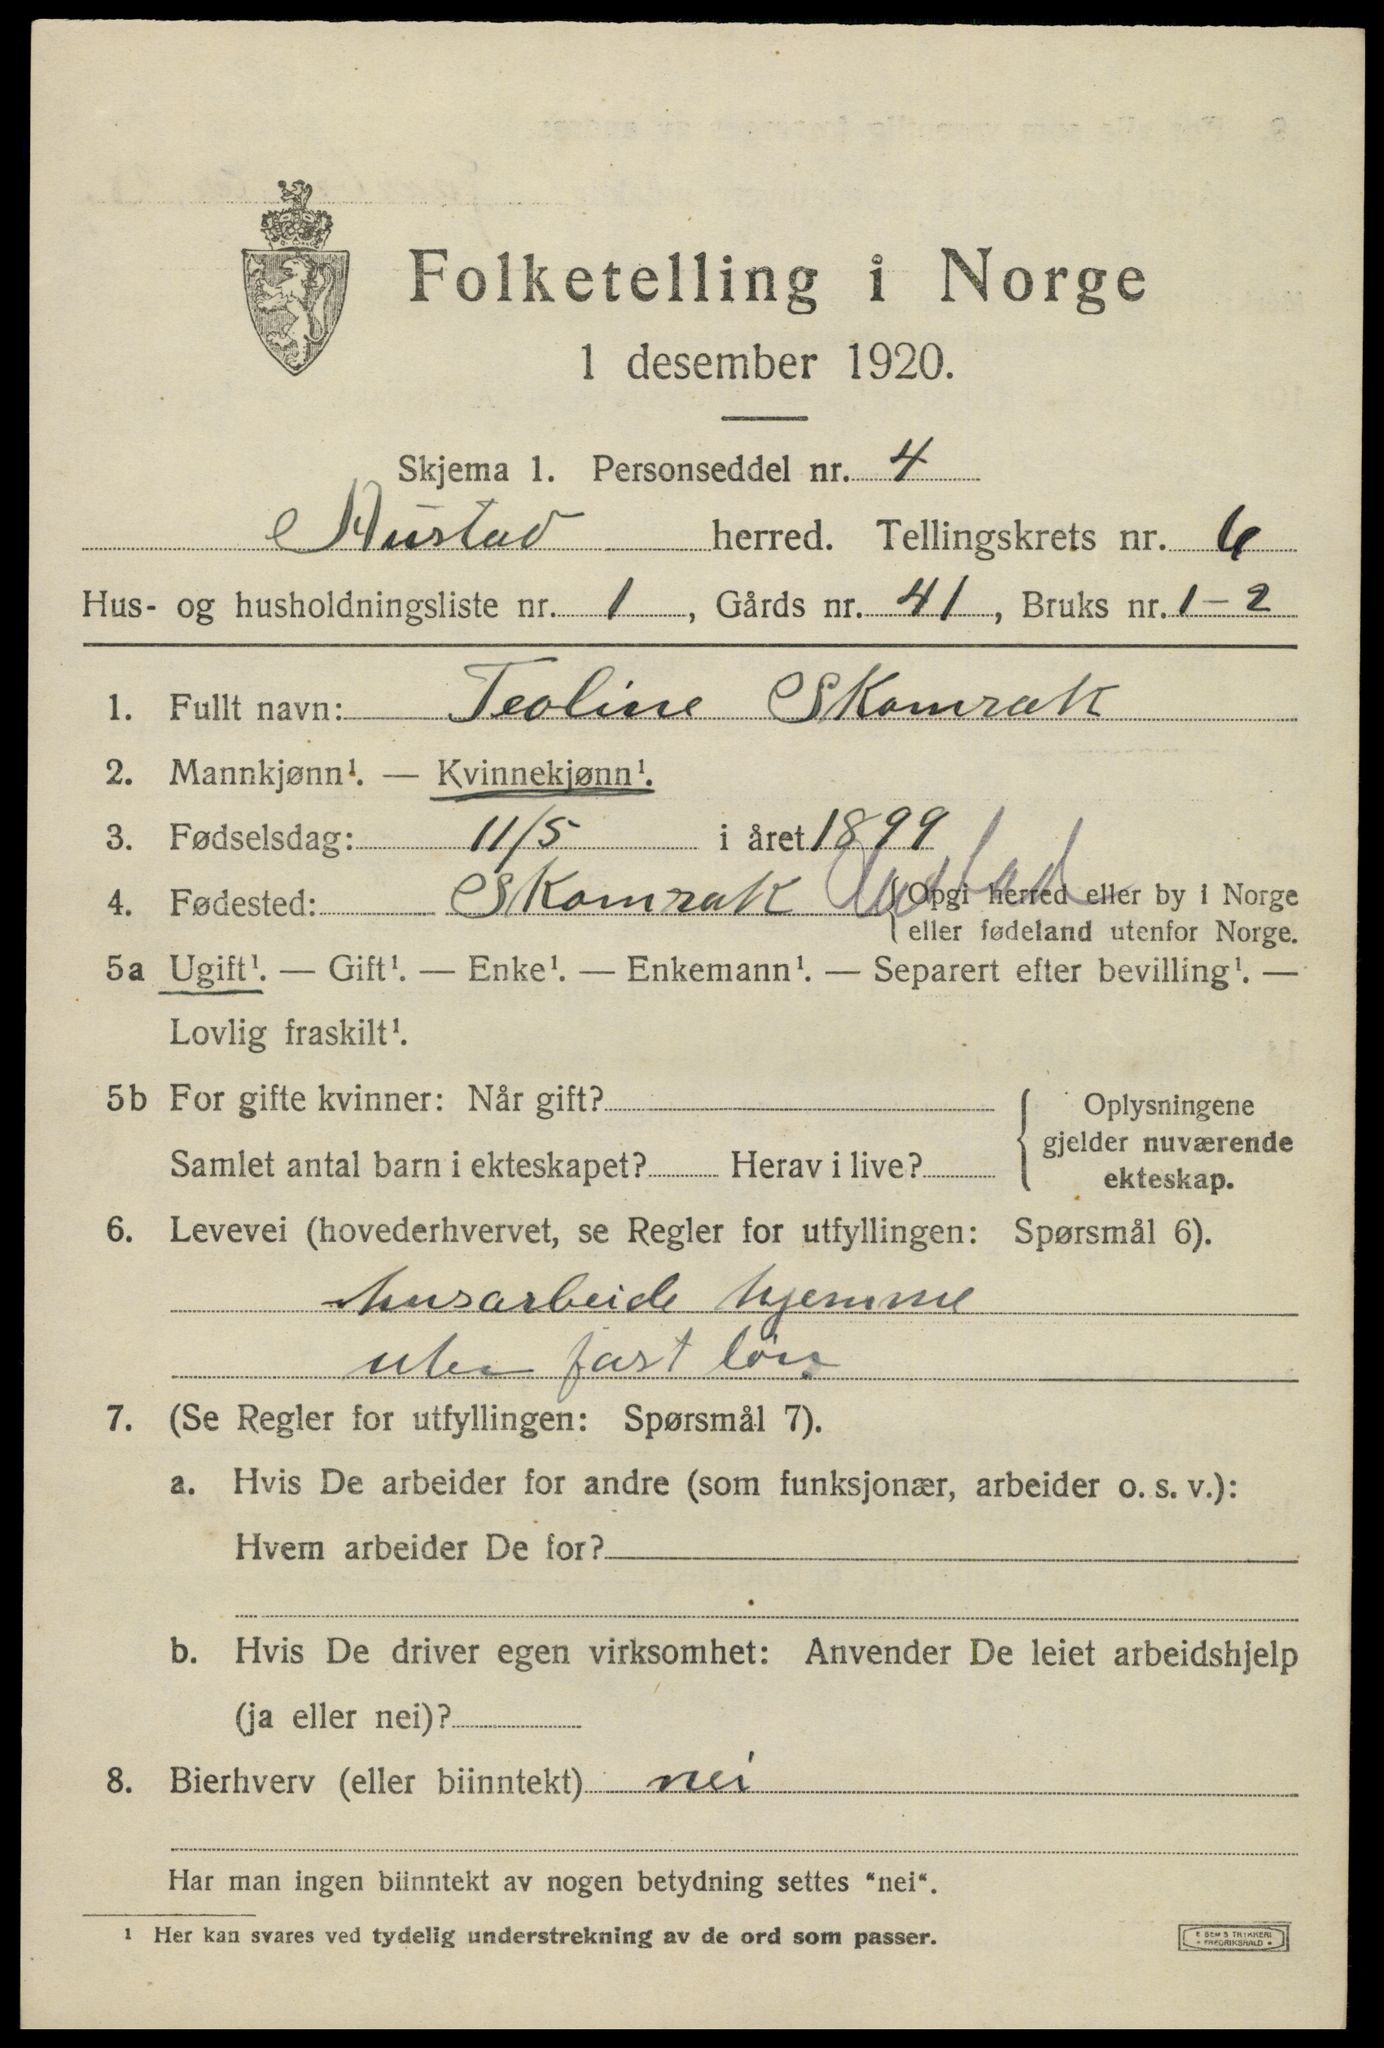 Folketelling i Norge
1 desember 1920.
Skjema 1. Personseddel nr. 4
Hustad herred. Tellingskrets nr. 6
Hus- og husholdningsliste nr. 1, Gårds nr. 41, Bruks nr. 1-2
1. Fullt navn: Teoline Skomrak
2. Mannkjønn¹. — Kvinnekjønn¹.
3. Fødselsdag: 11/5 i året 1899
4. Fødested: Skomrak Hustad { Opgi herred eller by i Norge
eller fødeland utenfor Norge.
5a Ugift¹. — Gift¹. — Enke¹. — Enkemann¹. — Separert efter bevilling¹. —
Lovlig fraskilt¹.
5b For gifte kvinner: Når gift? { Oplysningene
gjelder nuværende
Samlet antal barn i ekteskapet? Herav i live?
ekteskap.
6. Levevei (hovederhvervet, se Regler for utfyllingen: Spørsmål 6).
husarbeide hjemme
uten fast løn
7. (Se Regler for utfyllingen: Spørsmål 7).
a. Hvis De arbeider for andre (som funksjonær, arbeider o. s. v.):
Hvem arbeider De for?
b. Hvis De driver egen virksomhet: Anvender De leiet arbeidshjelp
(ja eller nei)?
8. Bierhverv (eller biinntekt) nei
Har man ingen biinntekt av nogen betydning settes "nei".
¹ Her kan svares ved tydelig understrekning av de ord som passer.
E. SEM'S TRYKKERI
FREDRIKSHALD